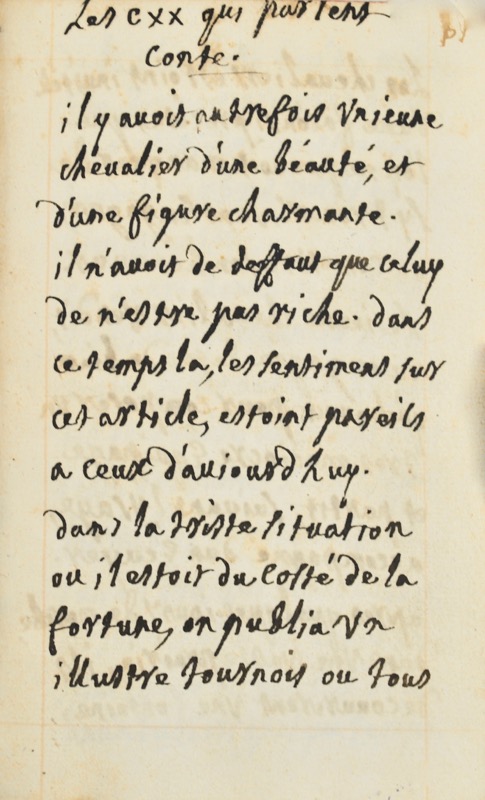 Les cxx qui parlent
Conte.
il y auoit autrefois Vn ieune
cheualier d'une béauté, et
d'une figure charmante.
il n'auoit de deffaut que celuy
de n'estre pas riche. dans
ce temps la, les sentimens sur
cet article, estoint pareils
a ceux d'auiourdhuy.
dans la triste situation
ou il estoit du Costé de la
fortune, on publia Vn
illustre tournois ou tous